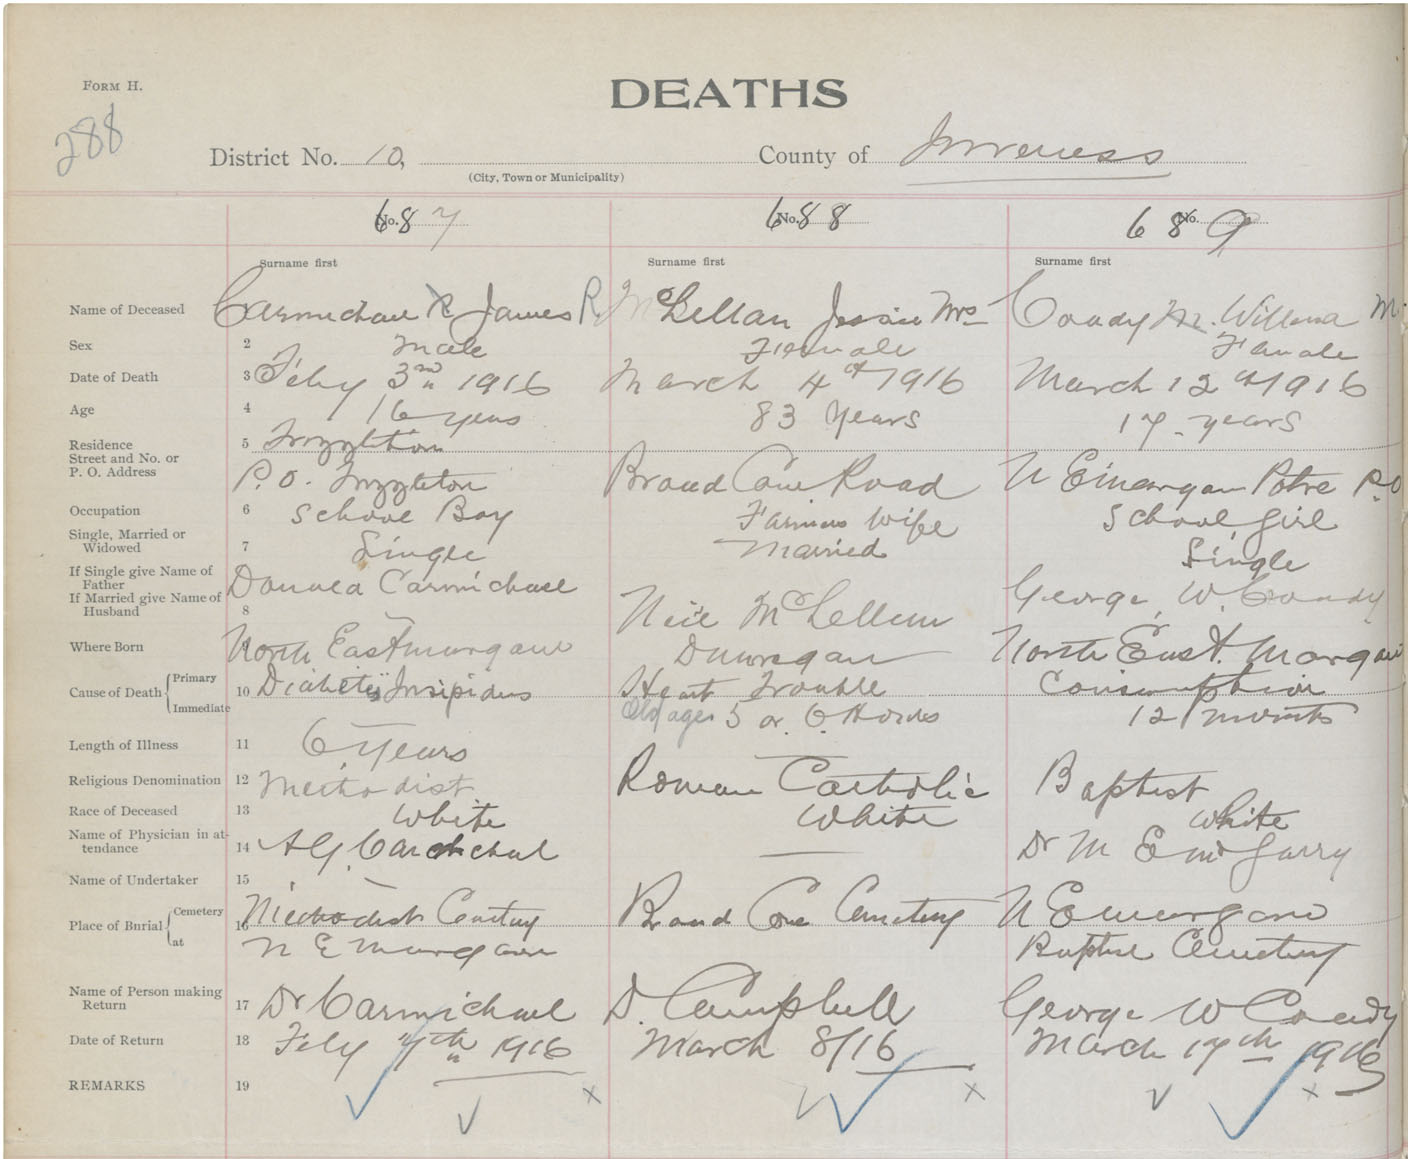 FORM H.
DEATHS
288
District No. 10,
County of Inverness
(City, Town or Municipality)
No. 687
No. 688
No. 689
Surname first
Surname first
Surname first
Name of Deceased
Carmichael R James R.
McLellan Jessie Mrs
Coady M. Willena M.
Sex
2
Male
Female
Female
Date of Death
3
Feby 3rd 1916
March 4th 1916
March 12th 1916
Age
4
16 years
83 Years
17 years
Residence
Street and No. or
P. O. Address
5
Frizzleton
P.O. Frizzleton
Broad Cove Road
N E Margaree P.O
Occupation
6
School Boy
Farmers Wife
School Girl
Single, Married or
Widowed
7
Single
Married
Single
If Single give Name of
Father
If Married give Name of
Husband
8
Carmichael
Neil McLellan
George W. Coady
Where Born
North East Margaree
Dunvegan
North East Margaree
Cause of Death
Primary
Immediate
10
Diabetes Insipidus
Heart Trouble
Old age 5 or 6
Consumption
12 months
Length of Illness
11
6 Years
Religious Denomination
12
Methodist
Roman Catholic
Baptist
Race of Deceased
13
White
White
White
Name of Physician in at-
tendance
14
Dr M E McGarry
Name of Undertaker
15
Place of Burial
Cemetery
at
16
Methodist Cemetery
N E Margaree
Broad Cove Cemetery
N E Margaree
Baptist Cemetery
Name of Person making
Return
17
Dr Carmichael
D. Campbell
George W Coady
Date of Return
18
Feby 7th 1916
March 8/16
March 17th 1916
REMARKS
19